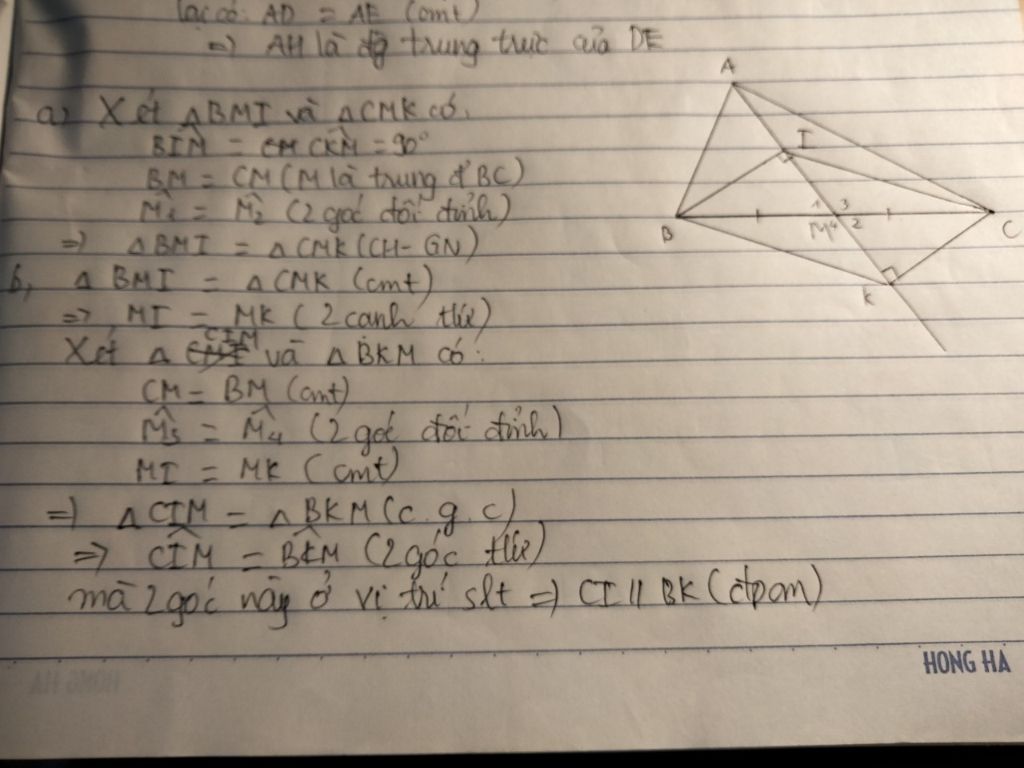 lại có: AD = AE (cmt)
=> AH là đg trung trực của DE
a, Xét △BMI và △CMK có:
BIM̂ = CKM̂ = 90°
BM = CM (M là trung đ' BC)
M̂₁ = M̂₂ (2 góc đối đỉnh)
=> △BMI = △CMK (CH-GN)
b, △BMI = △CMK (cmt)
=> MI = MK (2 cạnh tứ)
Xét △CIM và △BKM có:
CM = BM (cmt)
M̂₃ = M̂₄ (2 góc đối đỉnh)
MI = MK (cmt)
=> △CIM = △BKM (c.g.c)
=> CIM̂ = BKM̂ (2 góc tứ)
mà 2 góc này ở vị trí slt => CI // BK (đpcm)
A
I
1 3
B M 4 2 C
K
HONG HA